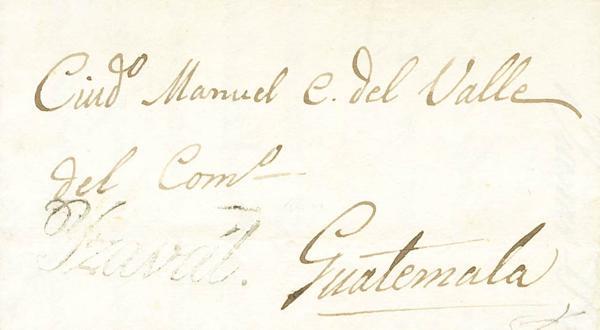 Ciudº Manuel C. del Valle
del Comº
Yzaval. Guatemala